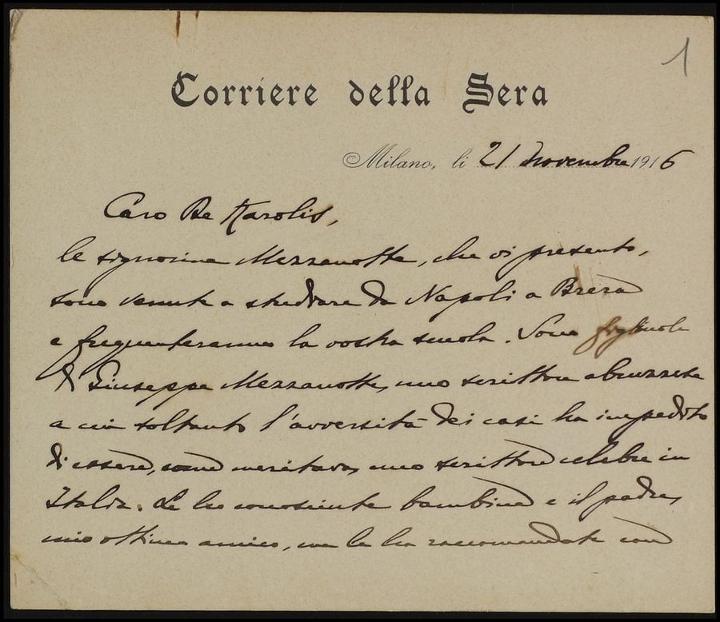 1
Corriere della Sera
Milano, li 21 novembre 1916
Caro De Karolis,
le signorine Mezzanotte, che vi presento,
sono venute a studiare da Napoli a Brera
e frequenteranno la vostra scuola. Sono figliuole
di Giuseppe Mezzanotte, uno scrittore abruzzese
a cui soltanto l'avversità dei casi ha impedito
di essere, come meritava, uno scrittore celebre in
Italia. Le ho conosciute bambine e il padre,
mio ottimo amico, me le ha raccomandate con